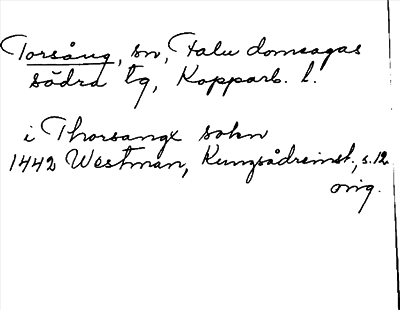 Torsång, sn, Falu domsagas
södra tg, Kopparb. l.
i Thorsangx sokn
1442 Westman, Kungsådreinst., s. 12
orig.